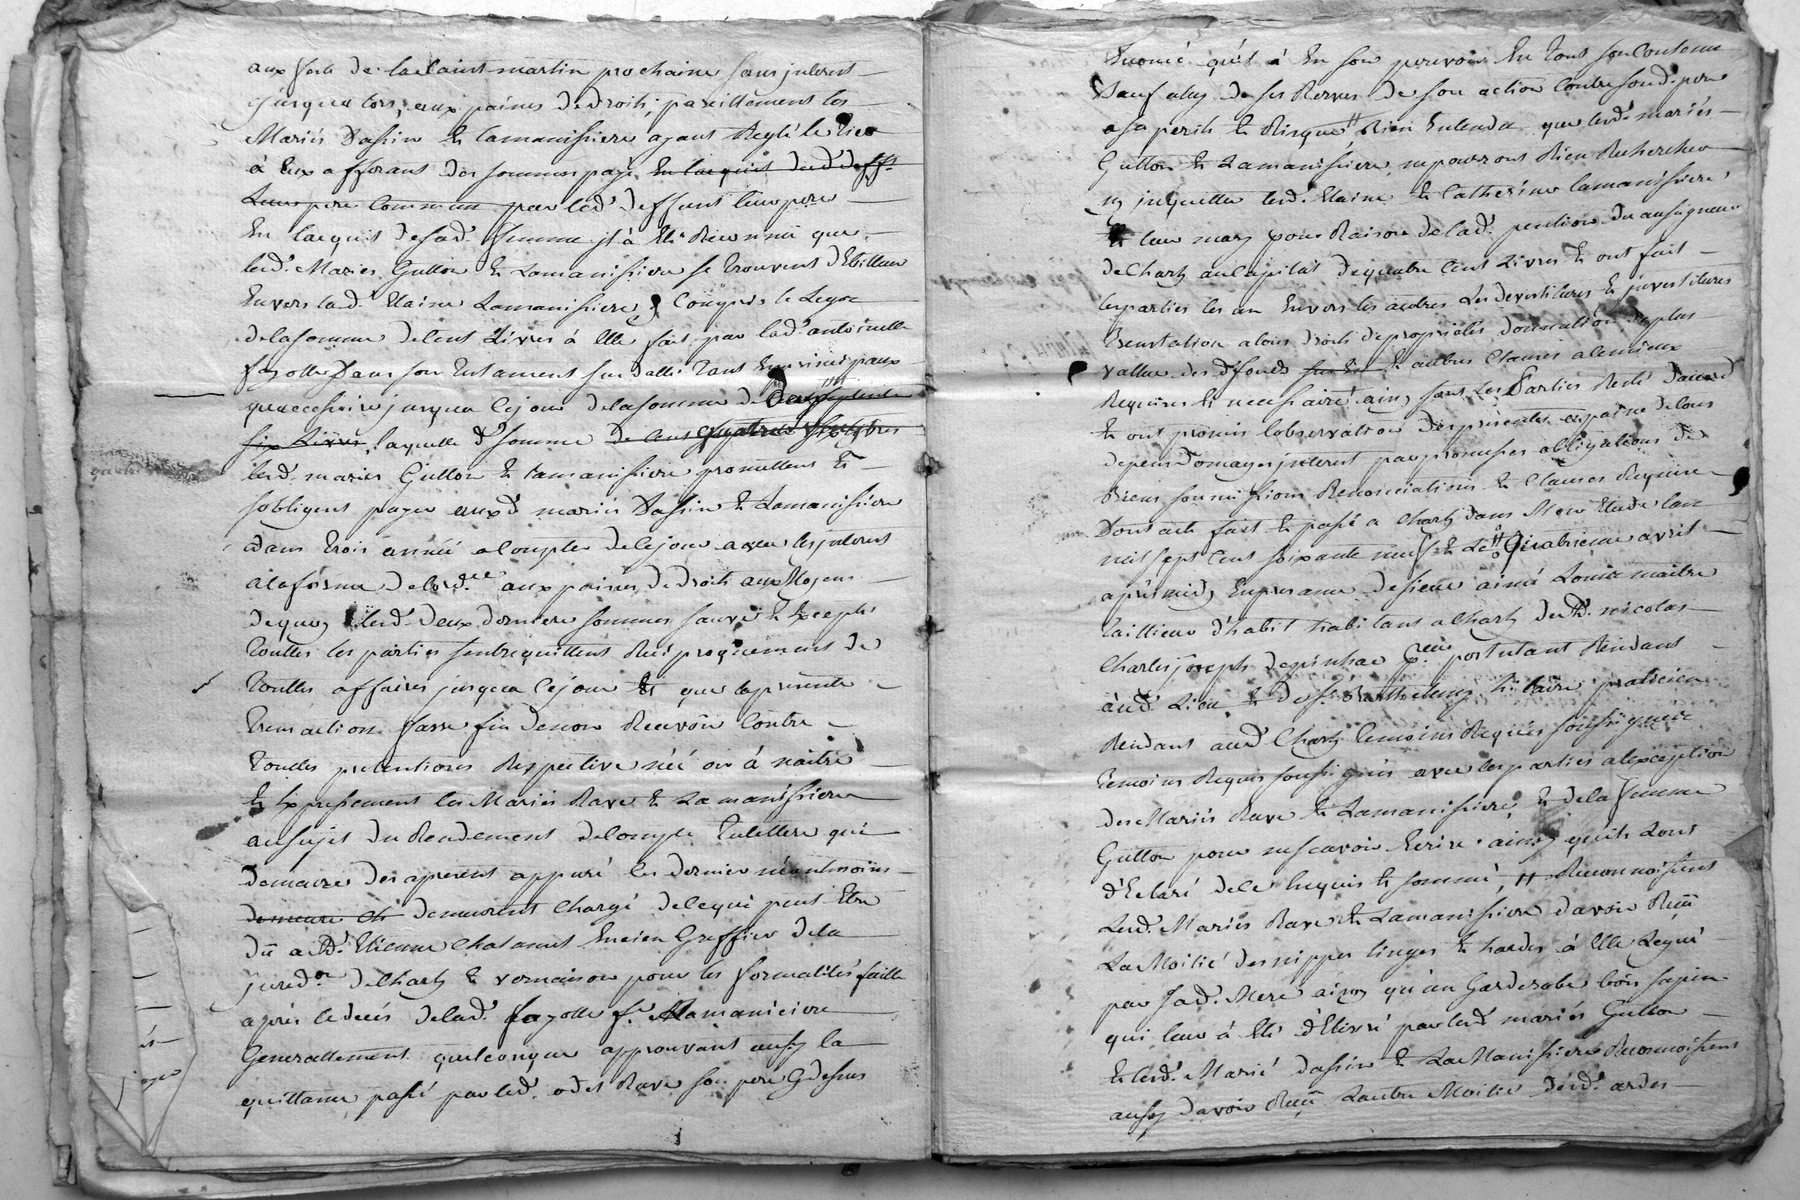 aux feste de la saint martin prochaine sans interest
jusqua lors, aux paines de droits; pareillement les
Mariés Dassin et Lamanissiere ayant Reglé le tier
à Eux afferant des sommes payé En lacquit dud. deff.t
Leur pere Commun par led.t deffunt leur pere
En lacquit de sad.t femme jl à Eté Reconnu que
lesd.t Mariés Gutton et Lamanissiere se trouvent débitteur
Envers lad.t Elaine Lamanissiere, Compris le Legat
de la somme de Cent Livres à Elle fait par lad.t antoinette
fayolle Dans son testament susdatté tant En principaux
quaccessoire jusqua Cejour de la somme de
six Livres, laquelle d.t somme de Cent quatre
lesd. mariés Gutton et Lamanissiere promettent Et
sobligent payer auxd.t mariés Dassin et Lamanissiere
dans trois année a Compter de Cejour avec les jnterest
a la forme de lord.ce aux paines de droits aux Moyens
de quoy lesd. deux derniere sommes sauve et Excepté
touttes les parties sentrequittent Reciproquement de
touttes affaires jusqua Cejour Et que la presente
transaction fasse fin de non Recevoir Contre
touttes pretentions Respective née ou à naitre
Et Expressement les Mariés Rave et Lamanissiere
au sujet du Rendement de Compte tutellere qui
demeure des apresent appuré les dernier néantmoins
demeure ch demeurent Chargé de Ce qui peut Etre
dû a M.e Etienne Chasanut Encien Greffier de la
jured.on de Charly et vernaison pour les formalités faitte
après le decés de lad.t fayolle f.e Lamaniciere
Generallement quelconque approuvant aussy la
quittance passé par led. odet Rave son pere Cydessus
Enoncé qu'il à En son pouvoir En tout son Contenu
Sauf aluy de ses Reserves de son action Contre sond. pere
a sa perils Et Risque Rien Entendu que lesd.t mariés
Gutton et Lamanissiere, ne pourront Rien Rechercher
ny jnquietter lesd. Elaine et Catherine Lamanissiere
Et leur mary pour Raison de lad.t pention du au seigneur
de Charly au Capital de quatre Cent Livres Et ont fait
les parties les un Envers les autres les devestitures Et jnvestitures
translation a tous droits de proprietés donnation de plus
vallue des d. fonds Et autres Clauses a Ce mieux
Requises et necessaire ainsy sont les Parties Resté daccord
Et ont promis lobservation des presentes a paine de tous
depens domages jnterest par promesses obligations de
biens soumissions Renonciations Et Clauses Requise
Dont acte fait Et passé a Charly dans Mon Etude lan
mil sept Cent soixante neuf et Le avril
après midy En presance de sieur aimé Louis maitre
taillieur d'habit habitant a Charly de M.e nicolas
Charles joseph depinhac postulant Residant
aud. Lieu Et de s.r Barthelemy hilaire praticien
Residant aud.t Charly temoins Requis soussignés
temoins Requis soussignés avec les parties a lexception
des Mariés Rave et Lamanissiere, Et de la femme
Gutton pour ne scavoir Ecrire ainsy qu'ils Lont
d'Eclaré de Ce Enquis Et sommé, Reconnoissent
Lesd. Mariés Rave et Lamanissiere davoir Recu
La Moitié des nippes linges Et hardes à Elle Legué
par sad.t Mere ainsy qu'un Garderobe bois sapin
qui leur à Eté d'Elivré par lesd.t mariés Gutton
Et lesd. Marié dassin Et La Manissiere Reconnoissent
aussy davoir Recu Lautre Moitié desd.t ardes